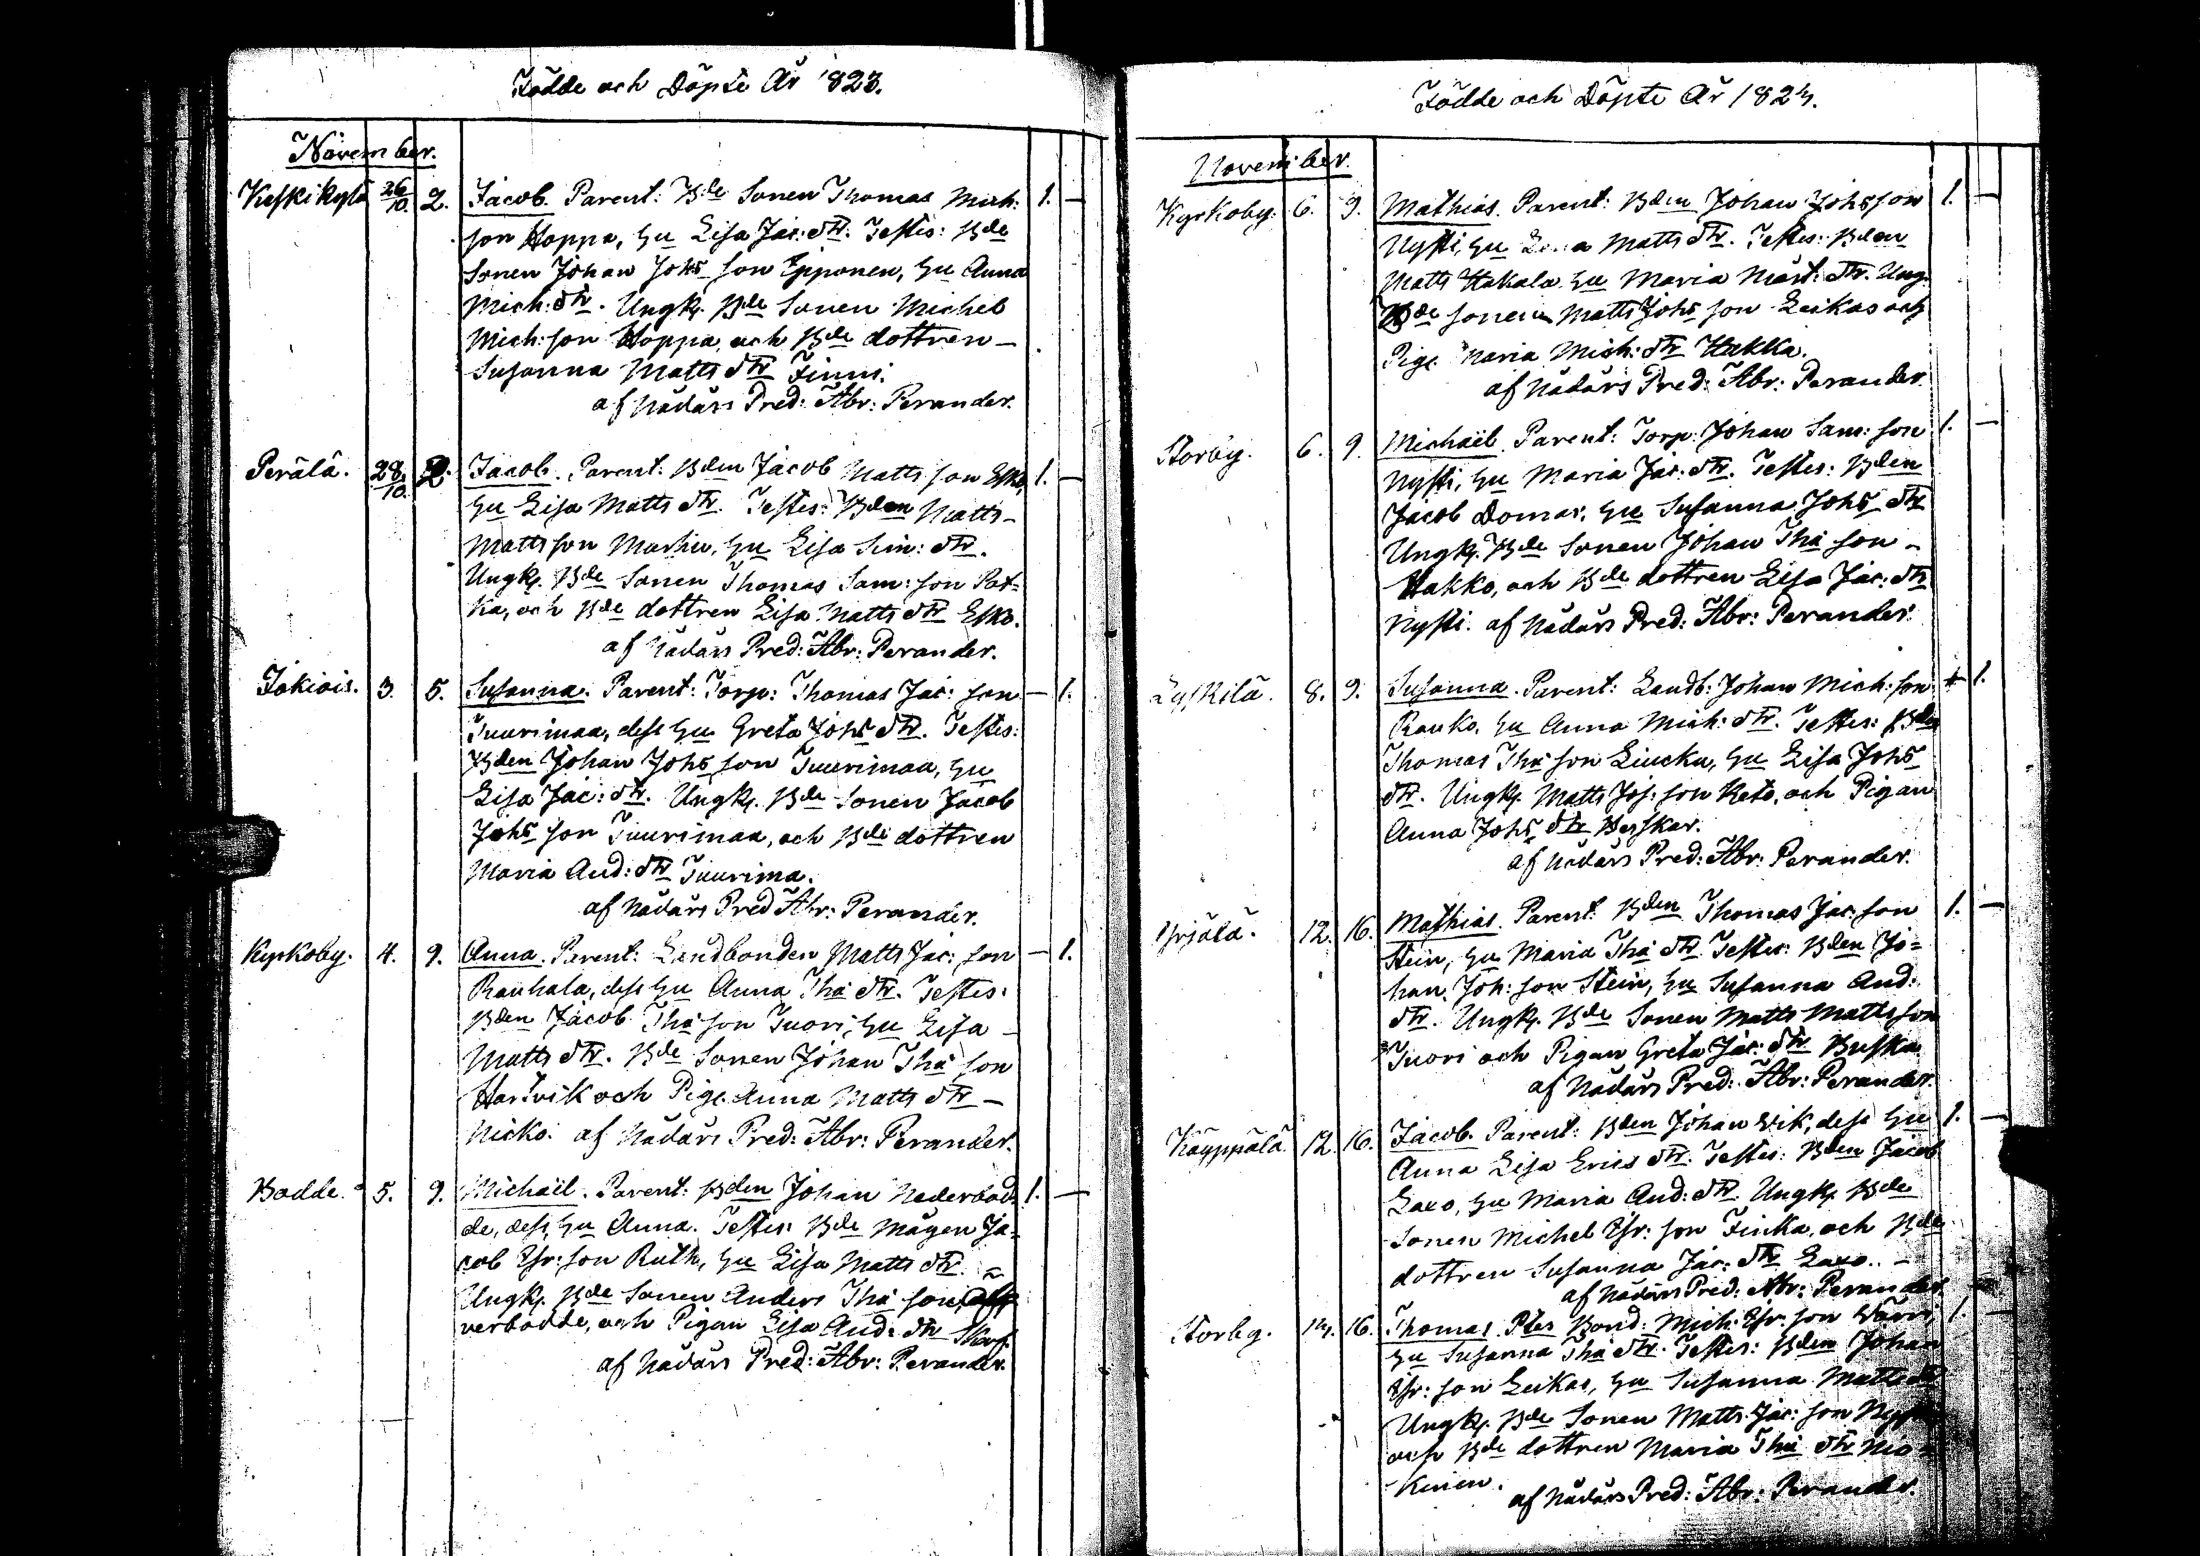 Födde och Döpte År 1823.
November.
Keskikylä 26/10. 2. Jacob. Parent: Bde Sonen Thomas Mich: 1. —
son Hoppa, hu Lisa Jac: dtr. Testes: Bde
Sonen Johan Johs son Ipponen, hu Anna
Mich: dtr. Ungk. Bde Sonen Michel
Mich: son Hoppa, och Bde dottren —
Susanna Matts dtr Finni.
af Nådårs Pred: Abr: Perander.
Perälä. 28/10. 2. Jacob. Parent: Bden Jacob Matts son Esko, 1. —
hu Lisa Matts dtr. Testes: Bden Matts —
Matts son Marhu, hu Lisa Sim: dtr.
Ungk. Bde Sonen Thomas Sam: son Pat-
ka, och Bde dottren Lisa Matts dtr Esko.
af Nådårs Pred: Abr: Perander.
Jokiois. 3. 5. Susanna. Parent: Torp: Thomas Jac: son — 1.
Tuurimaa, dess hu Greta Johs dtr. Testes:
Bden Johan Johs son Tuurimaa, hu
Lisa Jac: dtr. Ungk. Bde Sonen Jacob
Johs son Tuurimaa, och Bde dottren
Maria And: dtr Tuurima.
af Nådårs Pred Abr: Perander.
Kyrkoby. 4. 9. Anna. Parent: Landbonden Matts Jac: son — 1.
Rauhala, dess hu Anna Tha dtr. Testes:
Bden Jacob Tha son Tuori, hu Lisa —
Matts dtr. Bde Sonen Johan Tha son
Hartvik och Pig. Anna Matts dtr —
Nicko. af Nådårs Pred: Abr: Perander.
Bodde. 5. 9. Michaël. Parent: Bden Johan Nederbod- 1. —
de, dess hu Anna. Testes: Bde Mågen Ja-
cob Isr: son Ruth, hu Lisa Matts dtr.
Ungk. Bde Sonen Anders Tha son
verbodde, och Pigan Lisa And: dtr Skarf.
af Nådårs Pred: Abr: Perander.
Födde och Döpte År 1824.
November.
Kyrkoby. 6. 9. Mathias. Parent: Bden Johan Johs son 1. —
Nysti, hu Matts dtr. Testes: Bden
Matts Hakala hu Maria Mårt: dtr. Ung.
Bde sonen Matts Johs son Leikas och
Pig. Maria Mich: dtr Hakka.
af Nådårs Pred: Abr: Perander.
Storby. 6. 9. Michaël. Parent: Torp: Johan Sam: son 1. —
Nysti, hu Maria Jac: dtr. Testes: Bden
Jacob Domar, hu Susanna Johs dtr
Ungk. Bde Sonen Johan Tha son —
Hakko, och Bde dottren Lisa Jac: dtr
Nysti. af Nådårs Pred: Abr: Perander.
Lyskilä. 8. 9. Susanna. Parent: Landb: Johan Mich: son 1.
Rauko, hu Anna Mich: dtr. Testes: Bden
Thomas Tha son Liucku, hu Lisa Johs
dtr. Ungk. Matts Jos: son Keto, och Pigan
Anna Johs dtr
af Nådårs Pred: Abr: Perander.
Yrjälä. 12. 16. Mathias. Parent: Bden Thomas Jac: son 1. —
Stein, hu Maria Tha dtr. Testes: Bden Jo-
han Joh: son Stein, hu Susanna And:
dtr. Ungk. Bde Sonen Matts Matts son
Tuori och Pigan Greta Jac: dtr Buska
af Nådårs Pred: Abr: Perander.
Käyppälä. 12. 16. Jacob. Parent: Bden Johan Wik, dess hu 1. —
Anna Lisa Erics dtr. Testes: Bden Jacob
Laxo, hu Maria And: dtr. Ungk. Bde
Sonen Michel Isr: son Finka, och Bde
dottren Susanna Jac: dtr Laxo. —
af Nådårs Pred: Abr: Perander.
Storby. 14. 16. Thomas. Bond: Mich: Isr: son Wärri, 1. —
hu Susanna Tha dtr. Testes: Bden Johan
Isr: son Leikas, hu Susanna Matts dtr
Ungk. Bde Sonen Matts Jac: son
och Bde dottren Maria Tha dtr
kinen.
af Nådårs Pred: Abr: Perander.